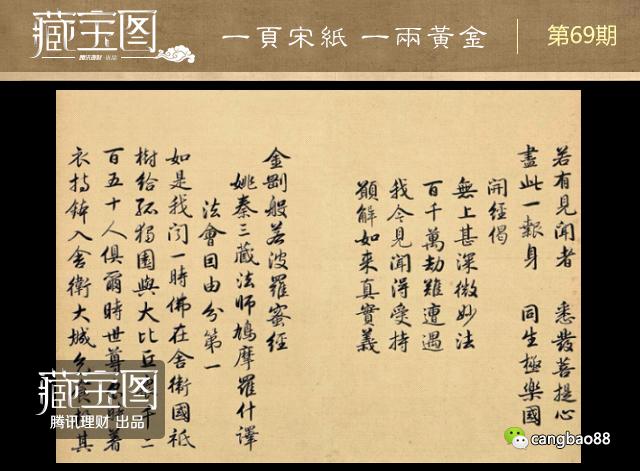 藏宝图
腾讯理财 出品
一頁宋紙 一兩黃金
第69期
若有見聞者 悉發菩提心
盡此一報身 同生極樂國
開經偈
無上甚深微妙法
百千萬劫難遭遇
我今見聞得受持
願解如來真實義
金剛般若波羅蜜經
姚秦三藏法師鳩摩羅什譯
法會因由分第一
如是我聞一時佛在舍衛國祇
樹給孤獨園與大比丘
千二
百五十人俱爾時世尊
著
衣持鉢入舍衛大城
其
藏宝图
腾讯理财 出品
cangbao88